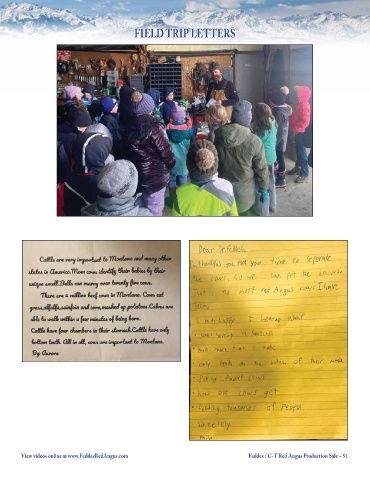 FIELD TRIP LETTERS
Cattle are very important to Montana and many other
states in America.Mom cows identify their babies by their
unique smell.Bulls can marry over twenty five cows.
There are a million beef cows in Montana. Cows eat
grass,alfalfa,sainfoin and corn,mashed up potatoes.Calves are
able to walk within a few minutes of being born.
Cattle have four chambers in their stomach.Cattle have only
bottom teeth. All in all, cows are important to Montana.
By: Aurora
Dear Dr.Feddes,
Thankful you took your time to
the cows, so we can pet the
That is the most red Angus cows I have
seen.
learning about
more than 1
only teeth on the bottom of their mouth
facts about cows
how big cows get
of people
sincerely
View videos online at www.FeddesRedAngus.com
Feddes / C-T Red Angus Production Sale – 51